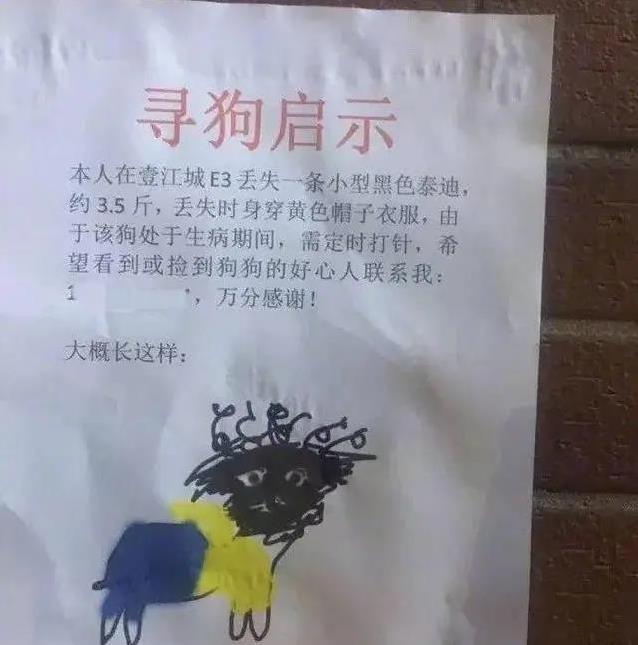 寻狗启示
本人在壹江城E3丢失一条小型黑色泰迪，
约3.5斤，丢失时身穿黄色帽子衣服，由
于该狗处于生病期间，需定时打针，希
望看到或捡到狗狗的好心人联系我：
1 ，万分感谢！
大概长这样：